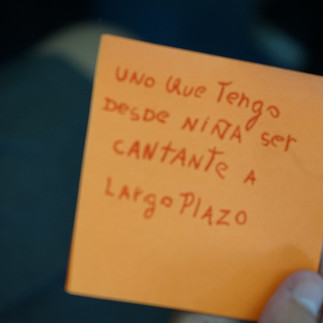 UNO QUE TENGO
DESDE NIÑA SER
CANTANTE A
LARGO PLAZO